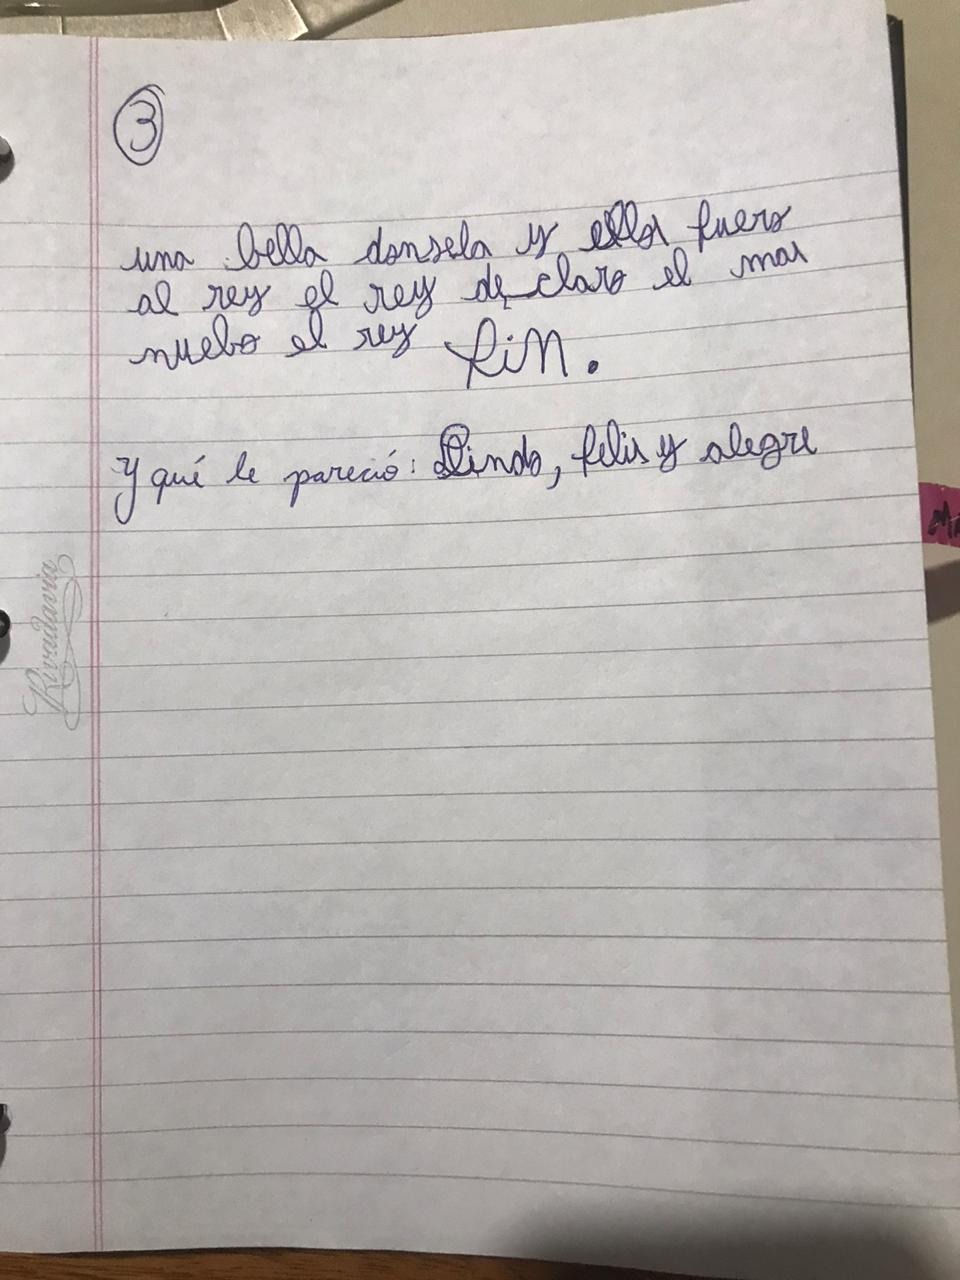 3
una bella donsela y ellos fuero
al rey el rey de claro el mas
nuebo el rey Fin.
Y qué le pareció: Lindo, felis y alegre
Rivadavia
MA